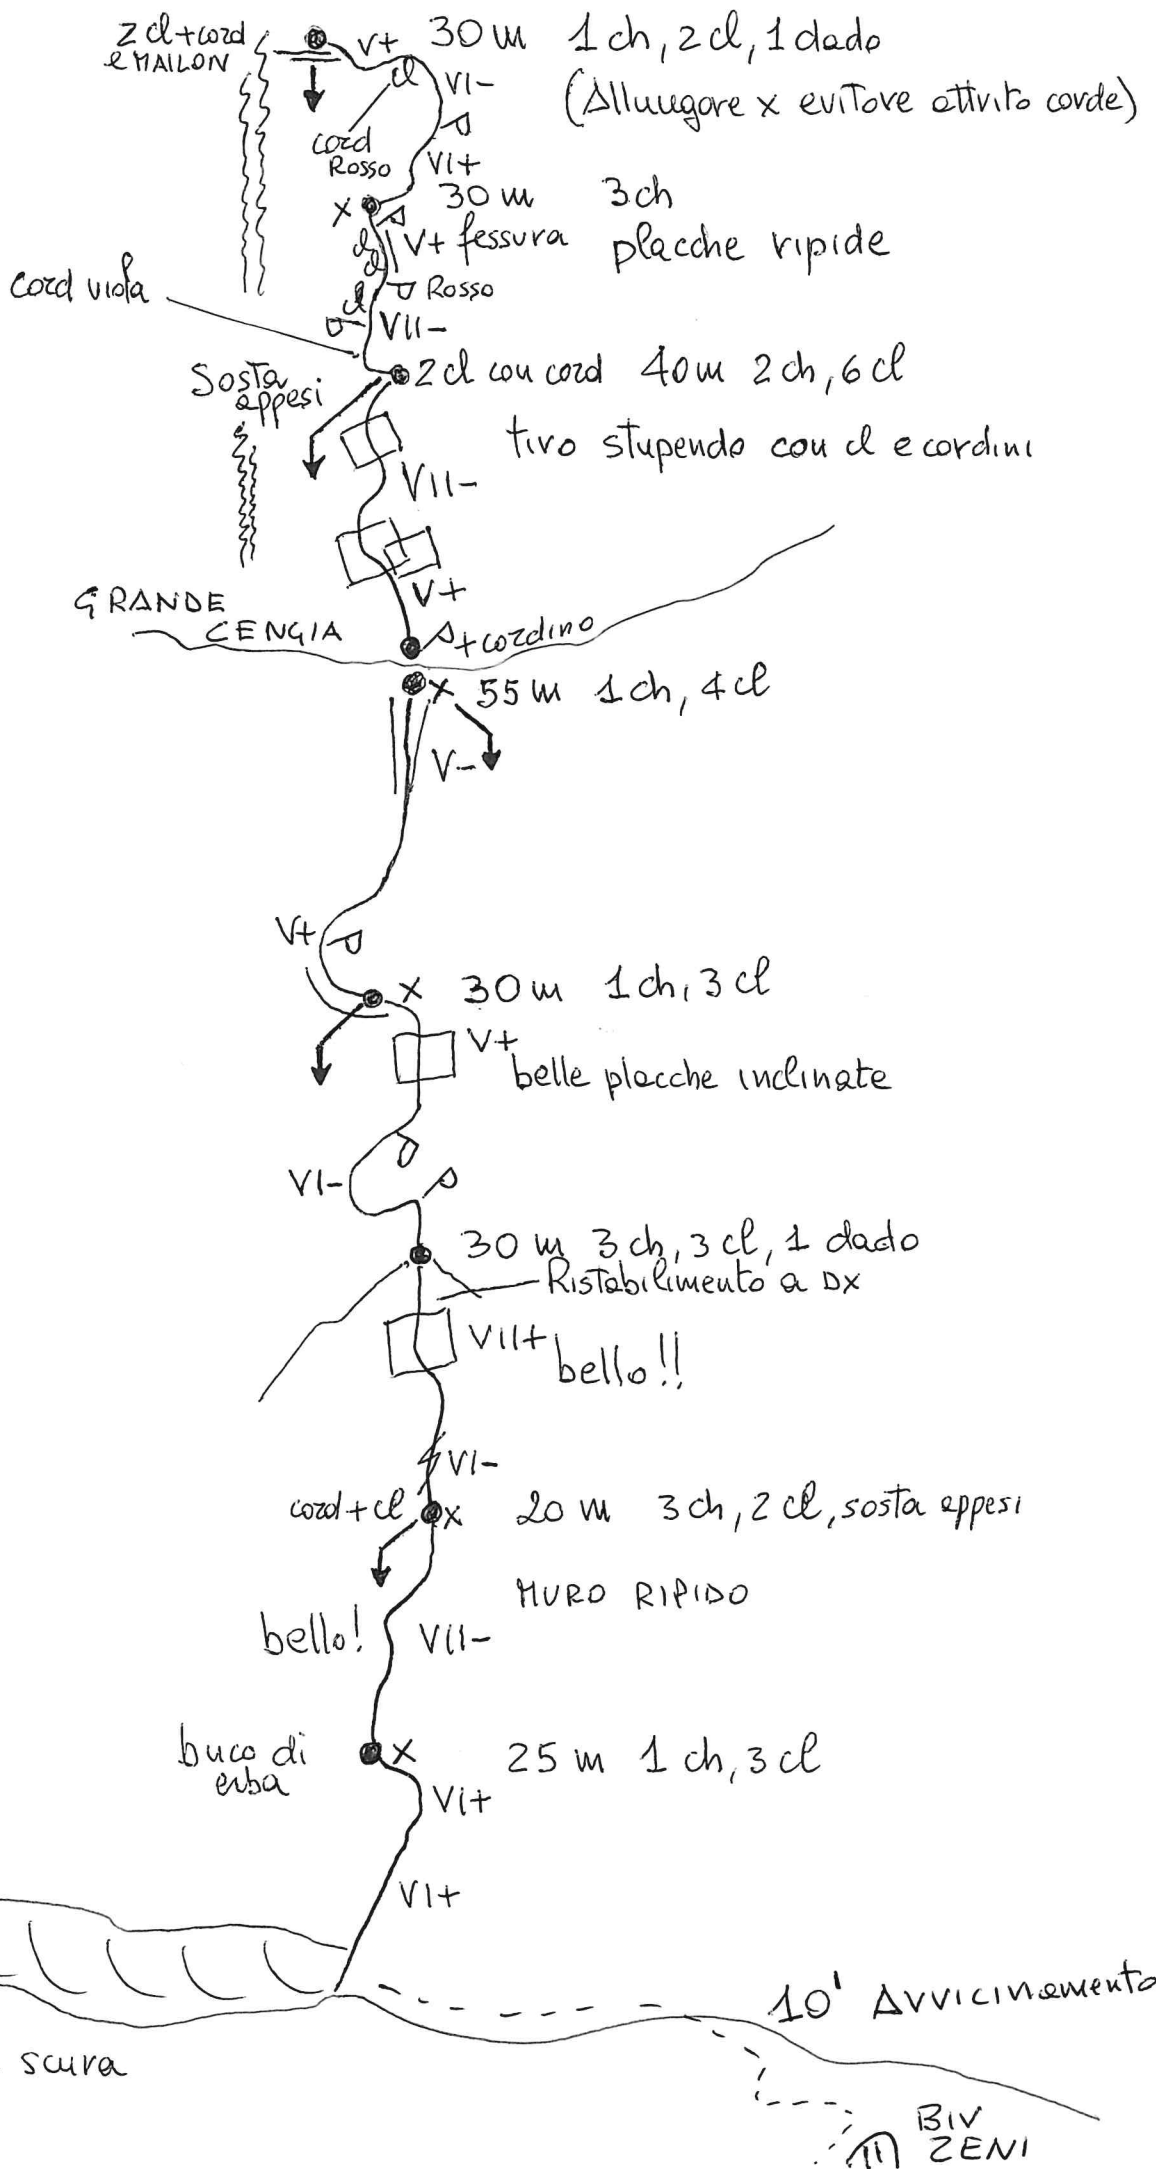 2 cl + cord
e MAILON
V+
30 m 1 ch, 2 cl, 1 dado
(Allungare x evitare attrito corde)
cl
VI-
cord
Rosso
VI+
X
30 m 3 ch
V+ fessura placche ripide
cl
cl
Rosso
cord viola
cl
VII-
Sosta
appesi
2 cl con cord 40 m 2 ch, 6 cl
tiro stupendo con cl e cordini
VII-
V+
GRANDE
CENGIA
+ cordino
X 55 m 1 ch, 4 cl
V-
V+
X 30 m 1 ch, 3 cl
V+
belle placche inclinate
VI-
30 m 3 ch, 3 cl, 1 dado
Ristabilimento a DX
VII+
bello!!
VI-
cord + cl
X 20 m 3 ch, 2 cl, sosta appesi
MURO RIPIDO
bello! VII-
buco di
erba
X 25 m 1 ch, 3 cl
VI+
VI+
10' Avvicinamento
scura
BIV
ZENI